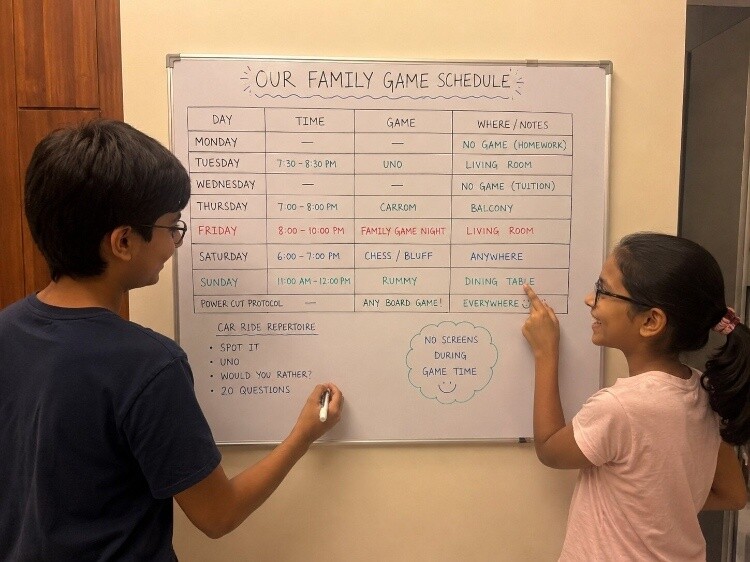 OUR FAMILY GAME SCHEDULE
DAY TIME GAME WHERE / NOTES
MONDAY — — NO GAME (HOMEWORK)
TUESDAY 7:30 - 8:30 PM UNO LIVING ROOM
WEDNESDAY — — NO GAME (TUITION)
THURSDAY 7:00 - 8:00 PM CARROM BALCONY
FRIDAY 8:00 - 10:00 PM FAMILY GAME NIGHT LIVING ROOM
SATURDAY 6:00 - 7:00 PM CHESS / BLUFF ANYWHERE
SUNDAY 11:00 AM - 12:00 PM RUMMY DINING TABLE
POWER CUT PROTOCOL — ANY BOARD GAME! EVERYWHERE
CAR RIDE REPERTOIRE
• SPOT IT
• UNO
• WOULD YOU RATHER?
• 20 QUESTIONS
NO SCREENS
DURING
GAME TIME